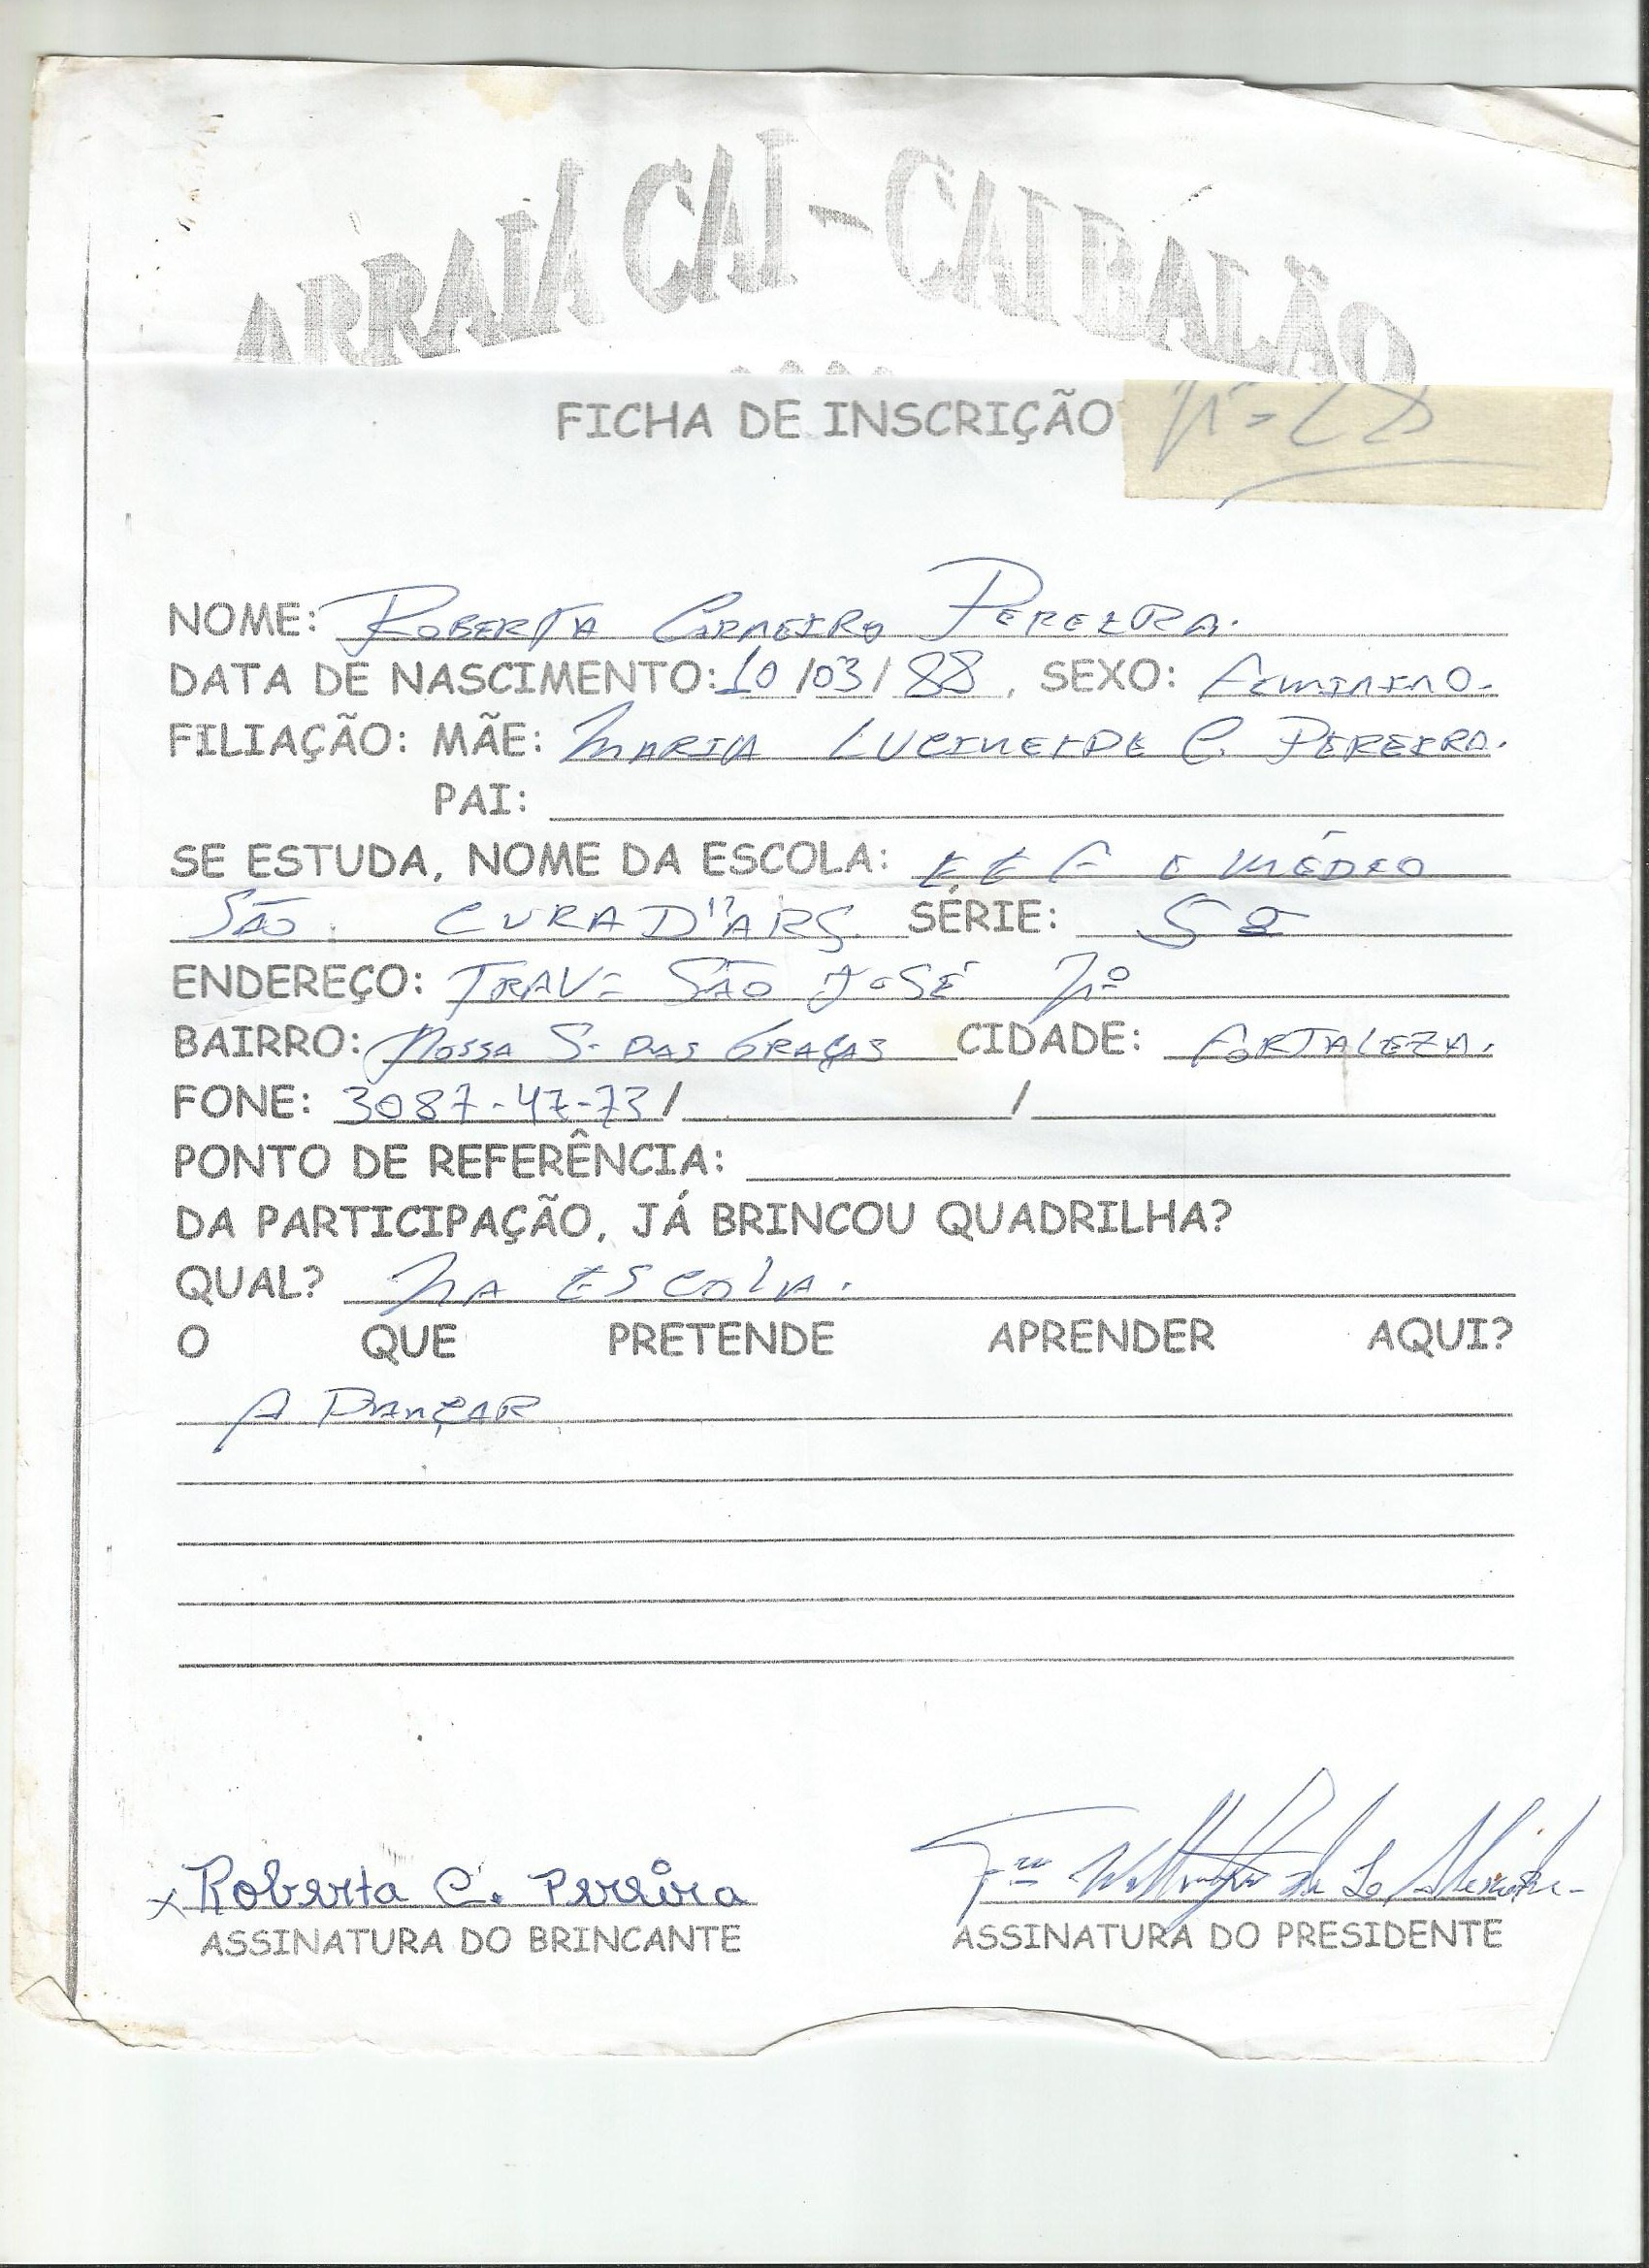 ARRAIÁ CAI-CAI BALÃO
FICHA DE INSCRIÇÃO
NOME: ROBERTA CARNEIRO PEREIRA.
DATA DE NASCIMENTO: 10/03/88, SEXO: FEMININO.
FILIAÇÃO: MÃE: MARIA LUCINEIDE C. PEREIRA.
PAI:
SE ESTUDA, NOME DA ESCOLA: E E F E MÉDIO
SÃO CURA D"ARS SÉRIE: 5ª
ENDEREÇO: TRAV= SÃO JOSÉ Nº
BAIRRO: NOSSA S. DAS GRAÇAS CIDADE: FORTALEZA.
FONE: 3087-47-73/ /
PONTO DE REFERÊNCIA:
DA PARTICIPAÇÃO, JÁ BRINCOU QUADRILHA?
QUAL? NA ESCOLA.
O QUE PRETENDE APRENDER AQUI?
A DANÇAR
x Roberta C. Pereira
ASSINATURA DO BRINCANTE ASSINATURA DO PRESIDENTE